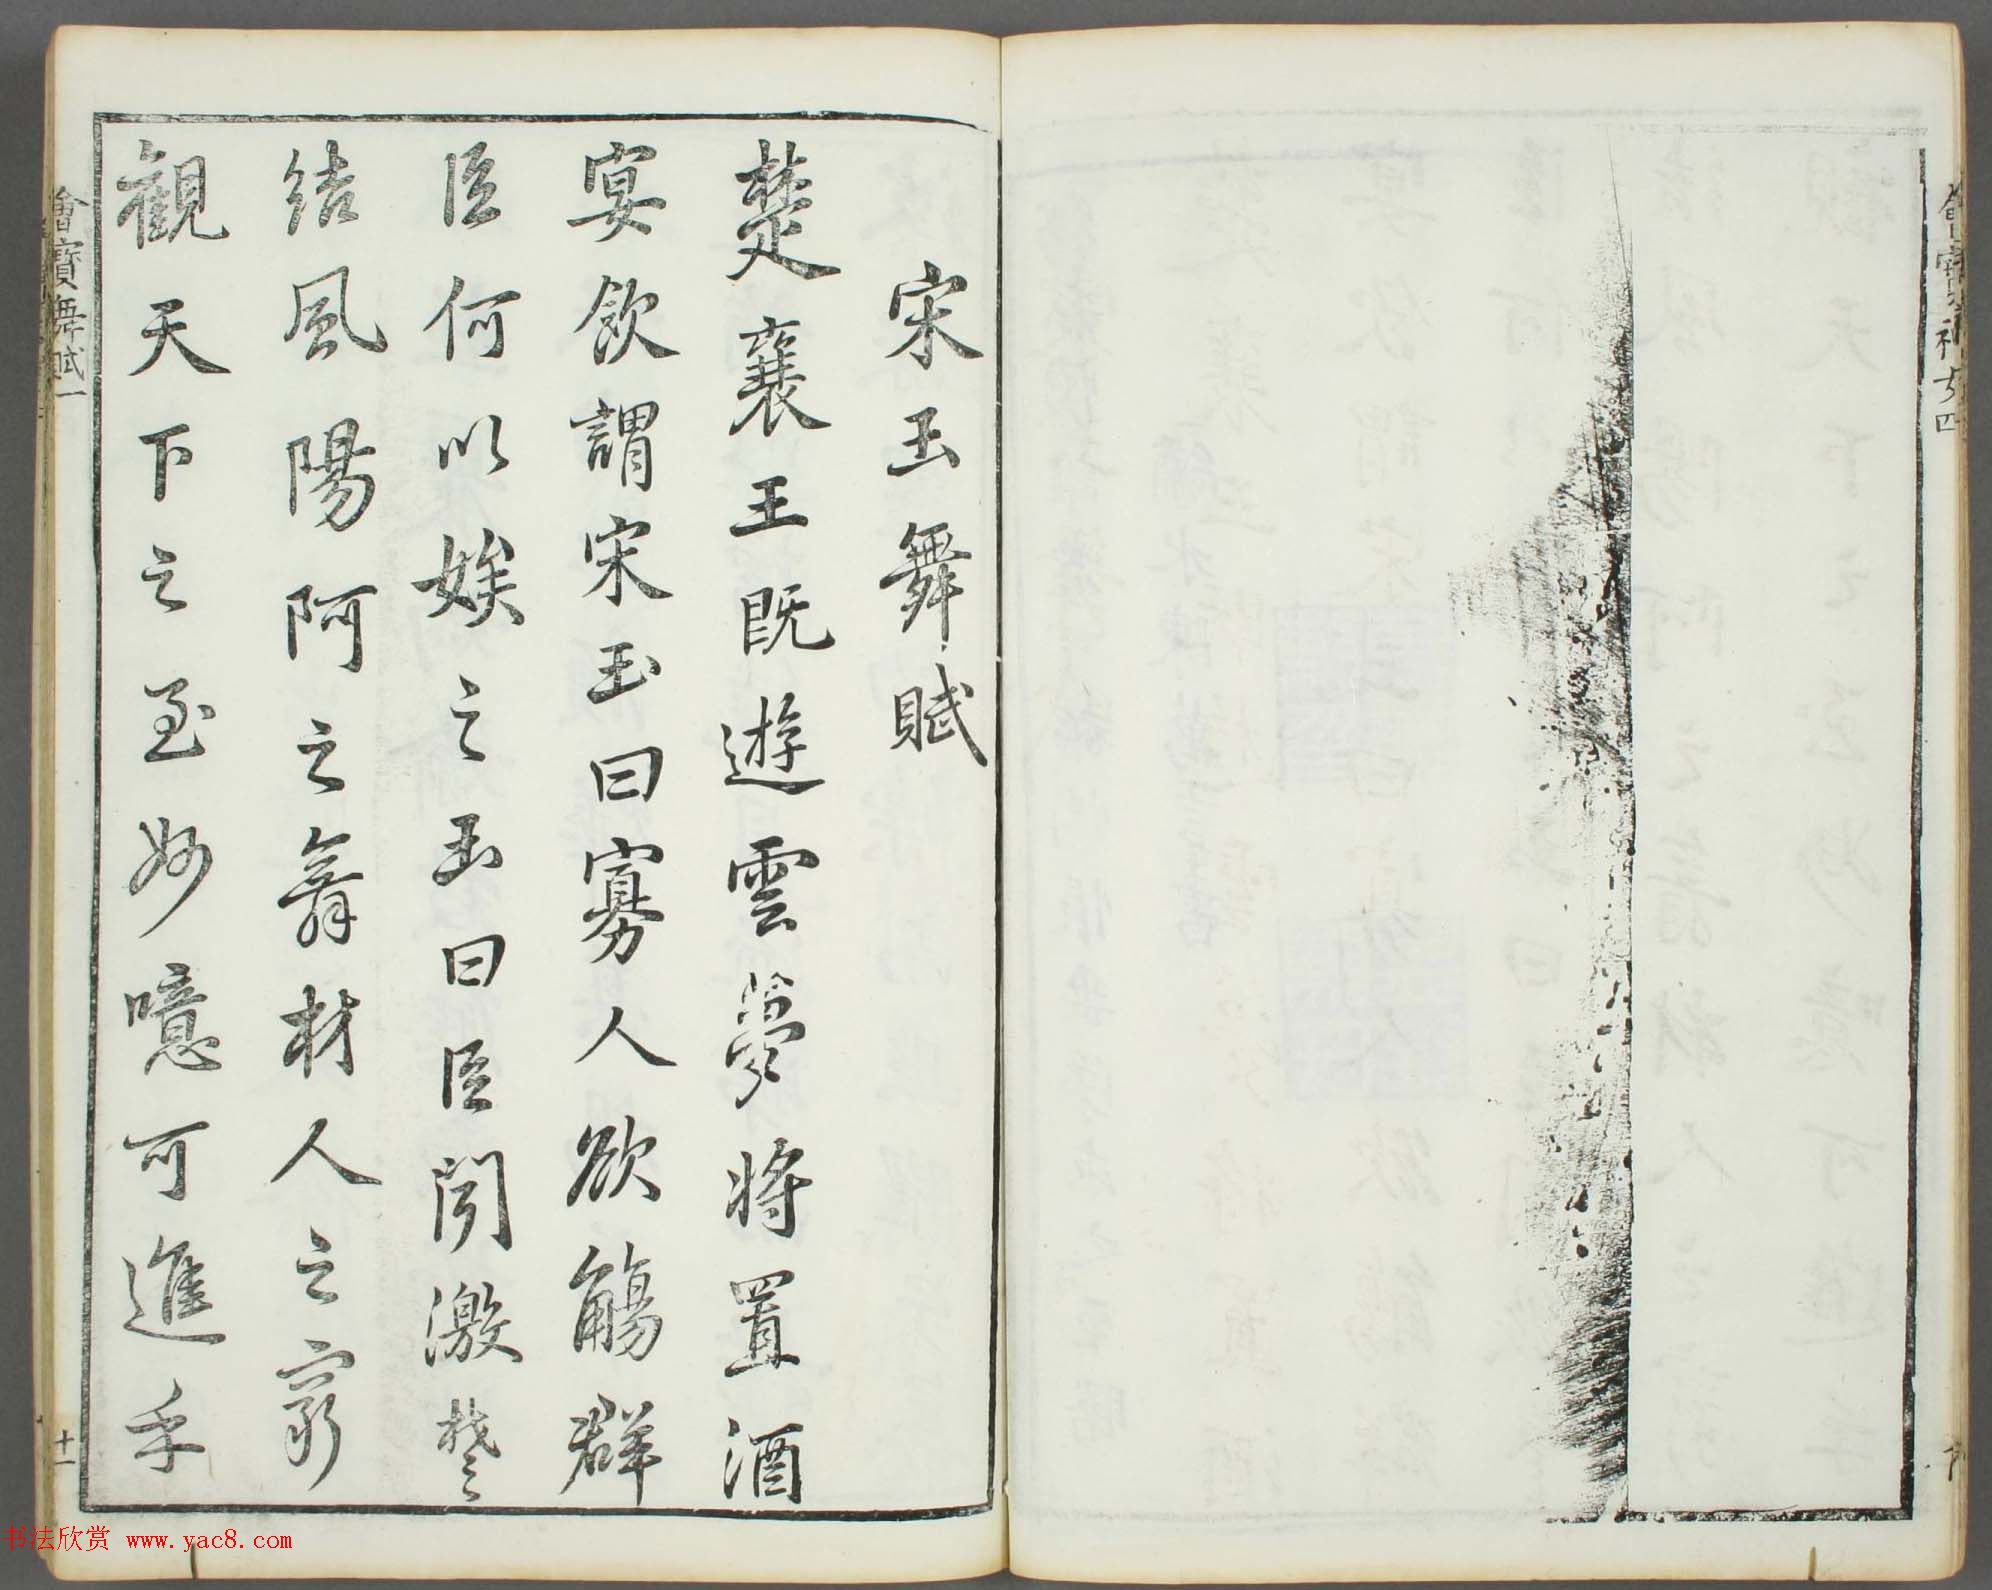 宋玉舞賦
楚襄王既遊雲夢將置酒
宴飲謂宋玉曰寡人欲觴群
臣何以娛之玉曰臣聞激楚
結風陽阿之舞材人之窮
觀天下之至妙噫可進乎
會寶舞賦一
十一
書法欣赏 www.yac8.com